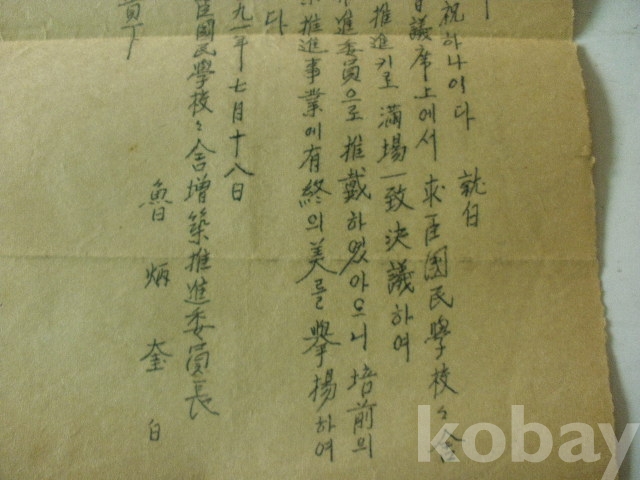 祝하나이다 就白
議席上에서 求臣國民學校々舍
推進키로 滿場一致決議하여
進委員으로 推戴하였아오니 培前의
推進事業에 有終의 美를 擧揚하여
다
九一年七月十八日
臣國民學校々舍增築推進委員長
魯炳奎 白
kobay